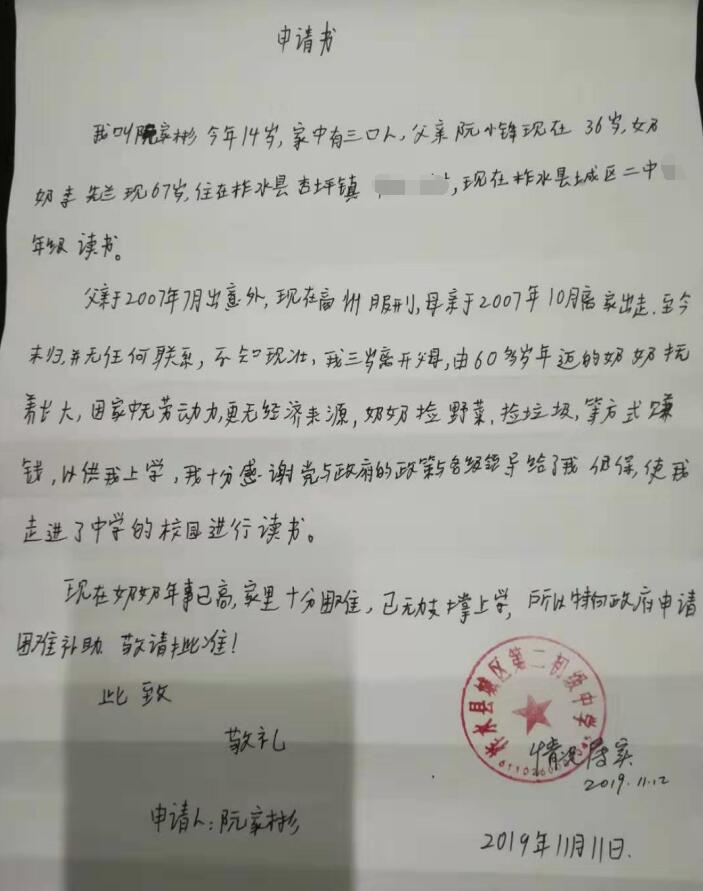 申请书
我叫阮家彬今年14岁,家中有三口人,父亲阮小锋现在36岁,奶
奶李先兰现67岁,住在柞水县杏坪镇,现在柞水县城区二中
年级读书。
父亲于2007年7月出意外,现在商州服刑,母亲于2007年10月离家出走.至今
未归,并无任何联系,不知现状,我三岁离开父母,由60多岁年迈的奶奶抚
养长大,因家中无劳动力,更无经济来源,奶奶捡野菜、捡垃圾,等方式赚
钱,以供我上学,我十分感谢党与政府的政策与各级领导给了我低保,使我
走进了中学的校园进行读书。
现在奶奶年事已高,家里十分困难,已无力支撑上学,所以特向政府申请
困难补助 敬请批准!
此致
敬礼
柞水县城区第二初级中学
情况属实
2019.11.12
申请人:阮家彬
2019年11月11日.